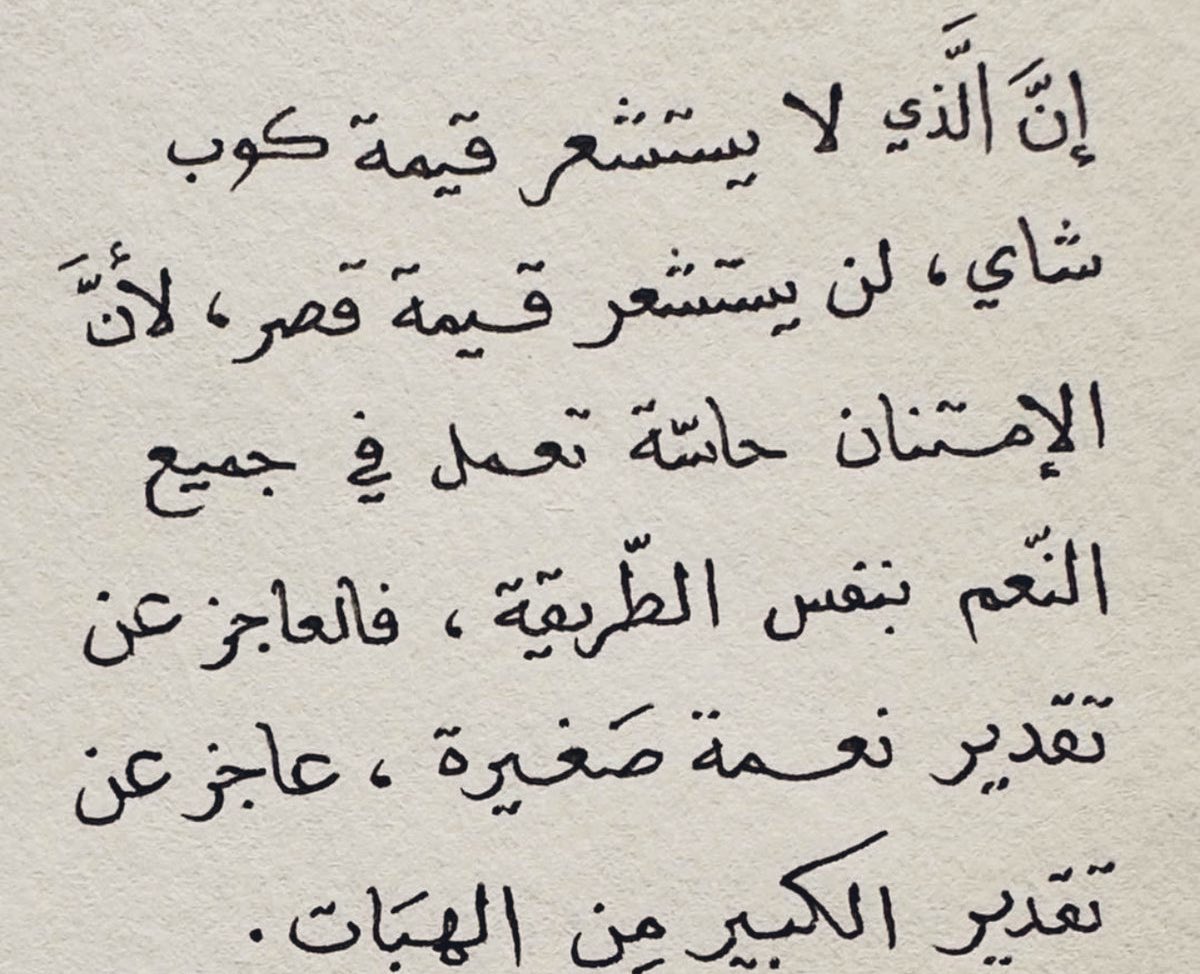 إنَّ الَّذي لا يستشعر قيمة كوب
شاي، لن يستشعر قيمة قصر، لأنَّ
الإمتنان حاسّة تعمل في جميع
النّعم بنفس الطّريقة، فالعاجز عن
تقدير نعمة صَغيرة، عاجز عن
تقدير الكبير مِن الهبَات.